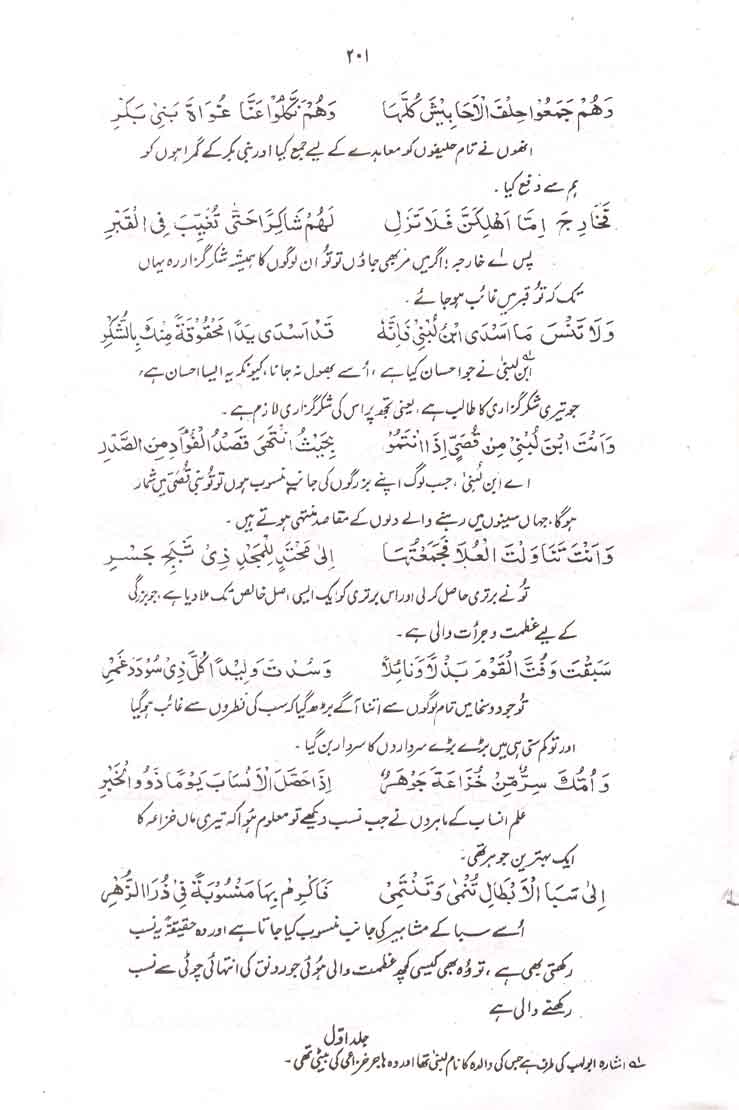 ۲۰۱
وَهُمْ جَمَعُوْا حِلْفَ الْاَحَابِيْشِ كُلَّهَا وَهُمْ نَكَّلُوْا عَنَّا غُوَاةَ بَنِىْ بَكْرِ
انھوں نے تمام حلیفوں کو معاہدے کے لیے جمع کیا اور بنی بکر کے گمراہوں کو
ہم سے دفع کیا ۔
فَخَارِجَ اِمَّا اَهْلِكَنَّ فَلَا تَزَلِ لَهُمْ شَاكِرًا حَتّٰى تُغَيَّبَ فِى الْقَبْرِ
پس اے خارجہ ! اگر میں مر بھی جاؤں تو تُو ان لوگوں کا ہمیشہ شکر گزار رہ یہاں
تک کہ تُو قبر میں غائب ہو جائے ۔
وَلَا تَنْسَ مَا اَسْدَى ابْنُ لُبْنٰى فَاِنَّهٗ قَدْ اَسْدٰى يَدًا مَحْقُوْقَةً مِنْكَ بِالشُّكْرِ
ابن لبنیٰ؂۱ نے جو احسان کیا ہے ، اُسے بھول نہ جانا ، کیونکہ یہ ایسا احسان ہے ،
جو تیری شکر گزاری کا طالب ہے ، یعنی تجھ پر اس کی شکر گزاری لازم ہے ۔
وَاَنْتَ ابْنَ لُبْنٰى مِنْ قُصَىٍّ اِذَا انْتَمَوْا بِحَيْثُ انْتَهٰى قَصْدُ الْفُؤَادِ مِنَ الصَّدْرِ
اے ابن لُبنیٰ ، جب لوگ اپنے بزرگوں کی جانب منسوب ہوں تو تُو بنی قُصَیّ میں شمار
ہوگا ، جہاں سینوں میں رہنے والے دلوں کے مقاصد منتہی ہوتے ہیں ۔
وَاَنْتَ تَنَاوَلْتَ الْعُلَا فَجَمَعْتَهَا اِلٰى مَحْتِدٍ لِلْمَجْدِ ذِىْ ثَبَجٍ جَسْرِ
تُو نے برتری حاصل کر لی اور اس برتری کو ایک ایسی اصل خالص تک ملا دیا ہے ، جو بزرگی
کے لیے عظمت و جرأت والی ہے ۔
سَبَقْتَ وَفُتَّ الْقَوْمَ بَذْلًا وَنَائِلًا وَسُدْتَ وَلِيْدًا كُلَّ ذِىْ سُوْدَدٍ غَمْرِ
تُو جود و سخا میں تمام لوگوں سے اتنا آگے بڑھ گیا کہ سب کی نظروں سے غائب ہوگیا
اور تو کم سنی ہی میں بڑے بڑے سرداروں کا سردار بن گیا ۔
وَاُمُّكَ سِرٌّ مِّنْ خُزَاعَةَ جَوْهَرٌ اِذَا حَصَّلَ الْاَنْسَابَ يَوْمًا ذَوُو الْخَبْرِ
علم انساب کے ماہروں نے جب نسب دیکھے تو معلوم ہُوا کہ تیری ماں خزاعہ کا
ایک بہترین جوہر تھی ۔
اِلٰى سَبَاِ الْاَبْطَالِ تُنْمٰى وَتَنْتَمِىْ فَاَكْرِمْ بِهَا مَنْسُوْبَةً فِىْ ذُرَا الزُّهْرِ
اُسے سبا کے مشاہیر کی جانب منسوب کیا جاتا ہے اور وہ حقیقۃً یہ نسب
رکھتی بھی ہے ، تو وُہ بھی کیسی کچھ عظمت والی ہوئی جو رونق کی انتہائی چوٹی سے نسب
رکھنے والی ہے
جلد اوّل
؂۱ اشارہ ابولہب کی طرف ہے جس کی والدہ کا نام لبنیٰ تھا اور وہ ہاجر خزاعی کی بیٹی تھی ۔